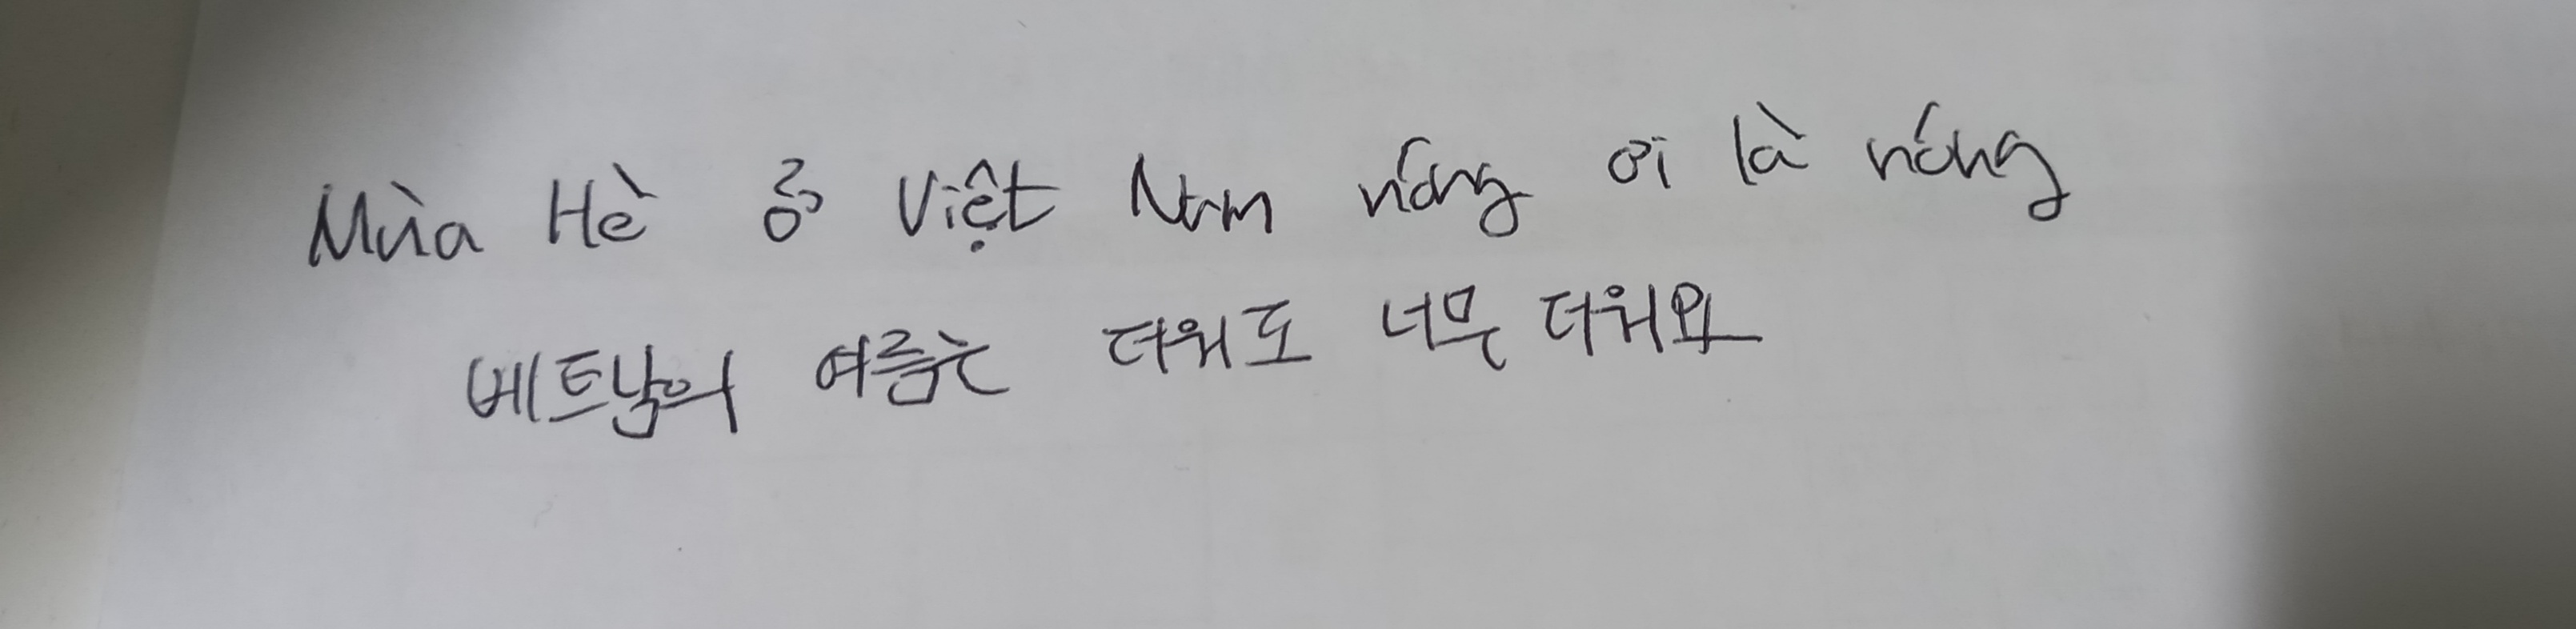 Mùa Hè ở Việt Nam nóng ơi là nóng
베트남의 여름는 더워도 너무 더워요